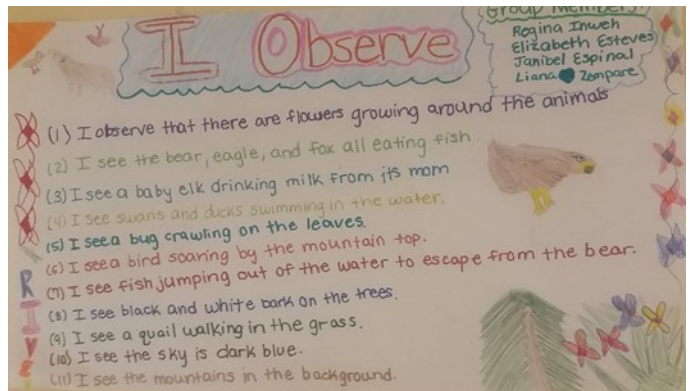 I Observe
Group Members
Regina Inweh
Elizabeth Esteves
Janibel Espinal
Liana Zompare
(1) I observe that there are flowers growing around the animals
(2) I see the bear, eagle, and fox all eating fish.
(3) I see a baby elk drinking milk from its mom
(4) I see swans and ducks swimming in the water.
(5) I see a bug crawling on the leaves.
(6) I see a bird soaring by the mountain top.
(7) I see fish jumping out of the water to escape from the bear.
(8) I see black and white bark on the trees.
(9) I see a quail walking in the grass.
(10) I see the sky is dark blue.
(11) I see the mountains in the background.